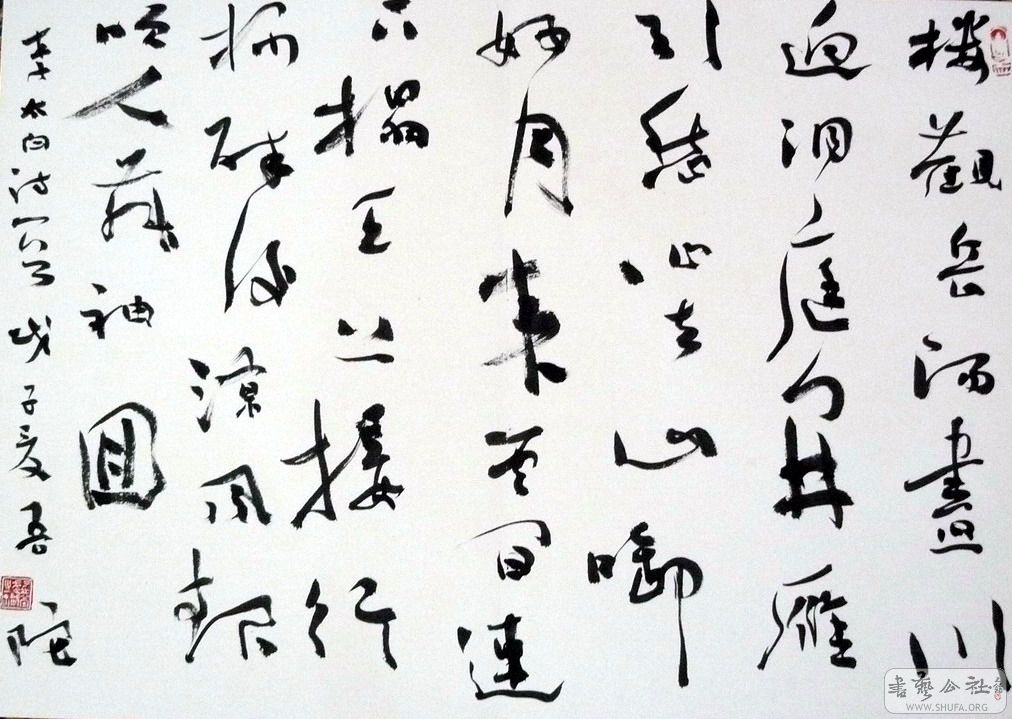 楼觀岳阳盡川
迥洞庭開雁
引愁心去山啣
好月来雲间連
下榻天上接行
杯醉後凉風起
吹人舞袖回
李太白诗一首戊子夏吾陀
書藝公社
WWW.SHUFA.ORG